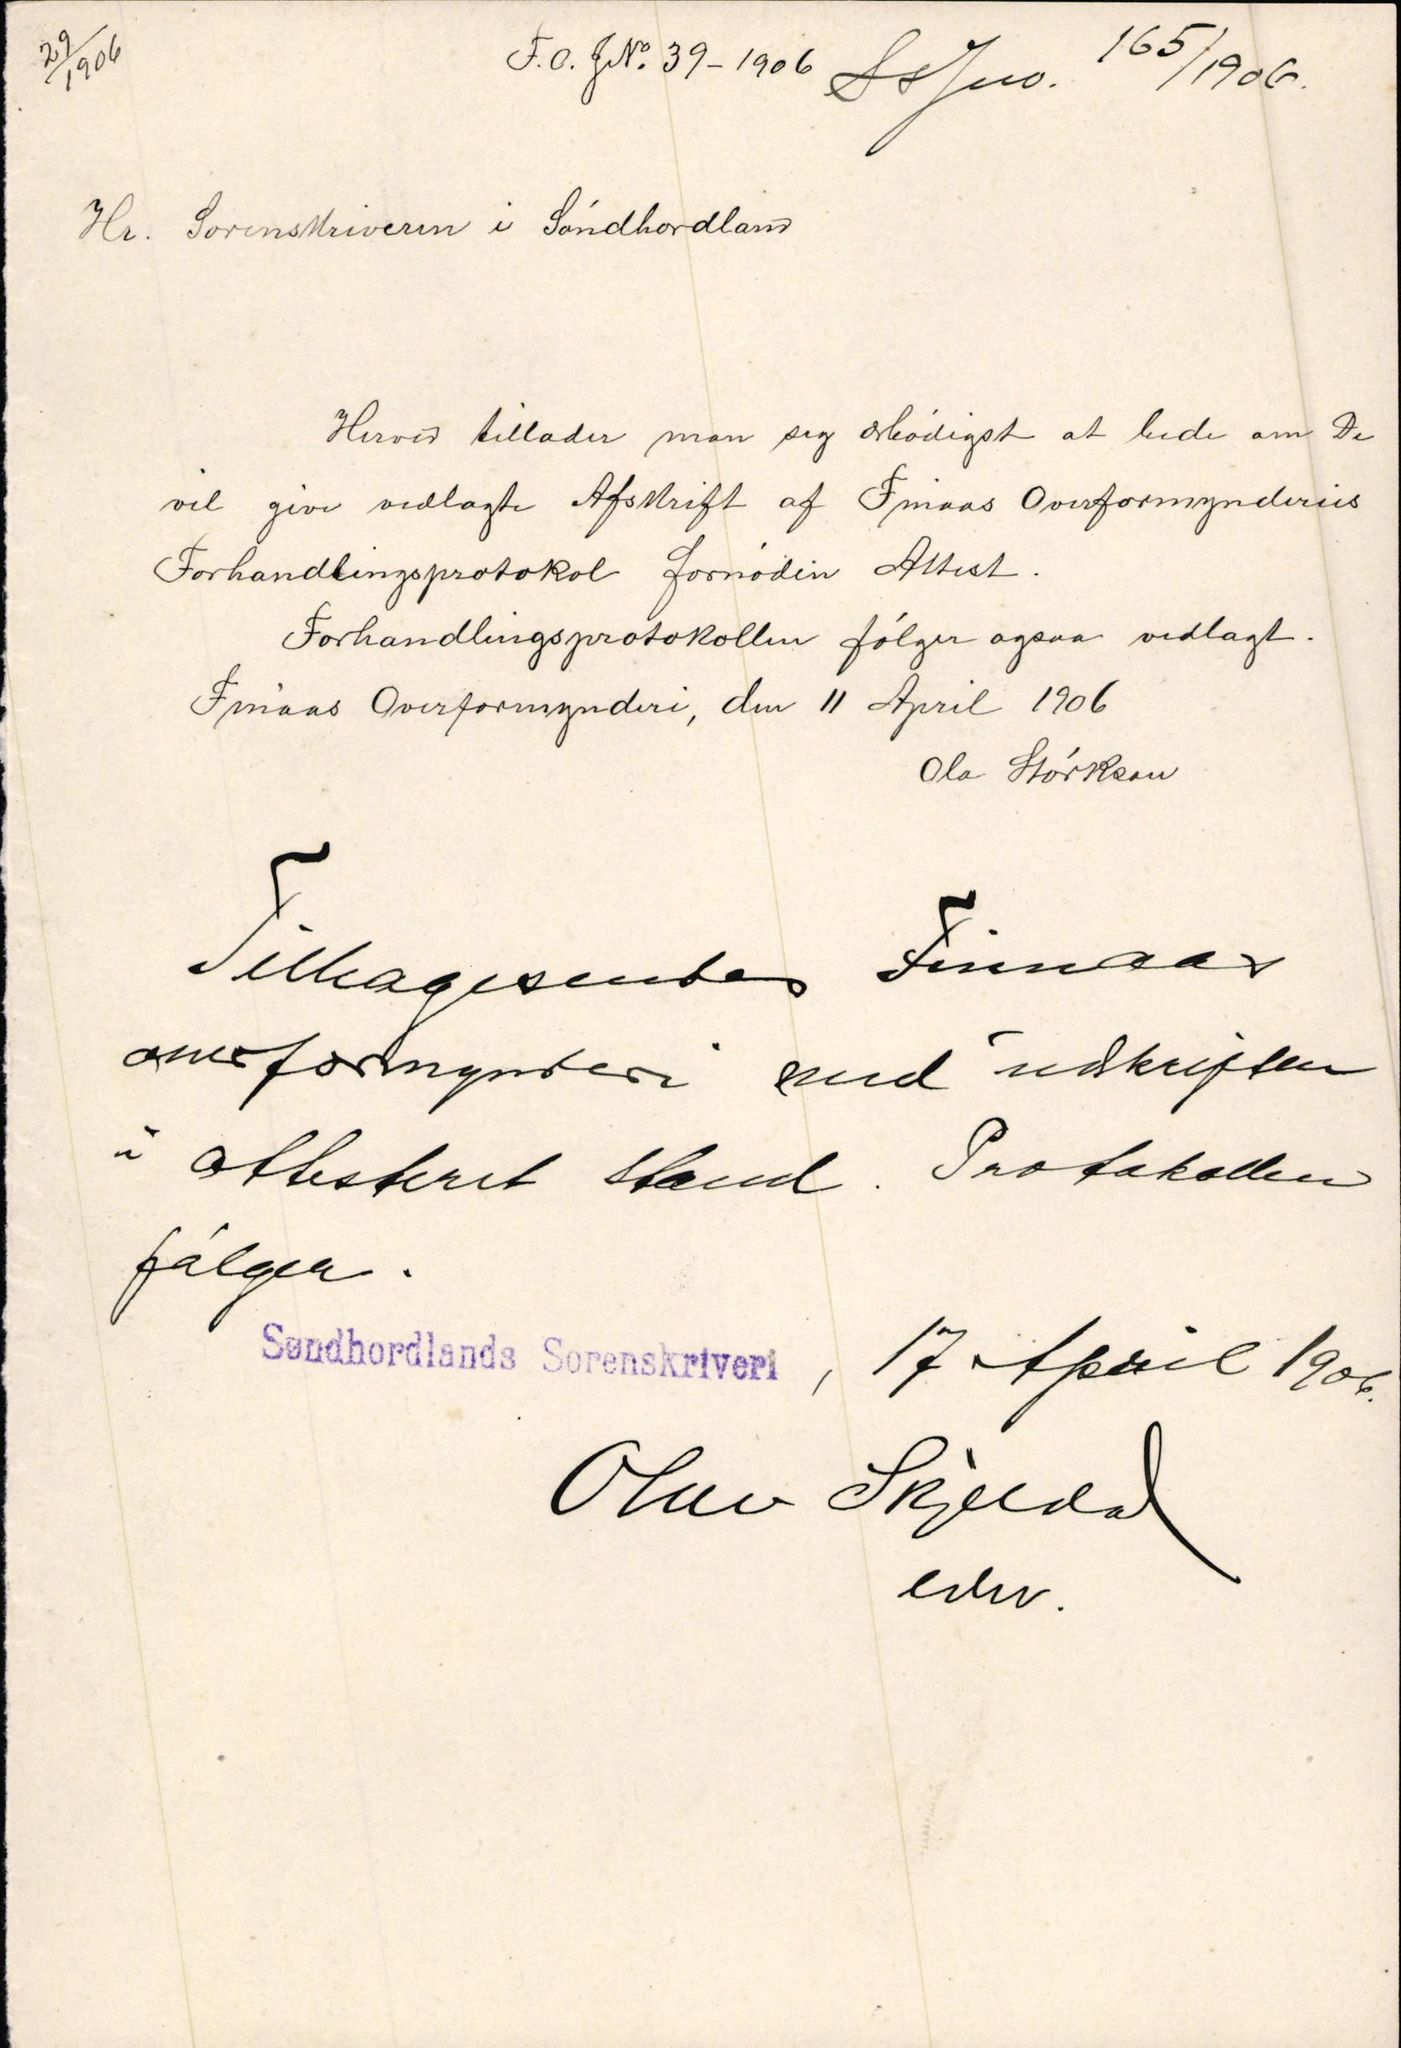 29/1906
F.O. J№. 39-1906 SsJno. 165/1906.
Hr. Sorenskriveren i Søndhordland
Herved tillader man seg ærbødigst at bede om De
vil give vedlagte Afskrift af Finaas Overformynderies
Forhandlingsprotokol fornøden Attest.
Forhandlingsprotokollen følger ogsaa vedlagt.
Finaas Overformynderi, den 11 April 1906
Ola Størkson
Tilbagesendes Finnaas
overformynderi med udskriften
i attesteret stand. Protokollen
følger.
Søndhordlands Sorenskriveri, 17 April 1906.
Olav Skjeldal
edsv.